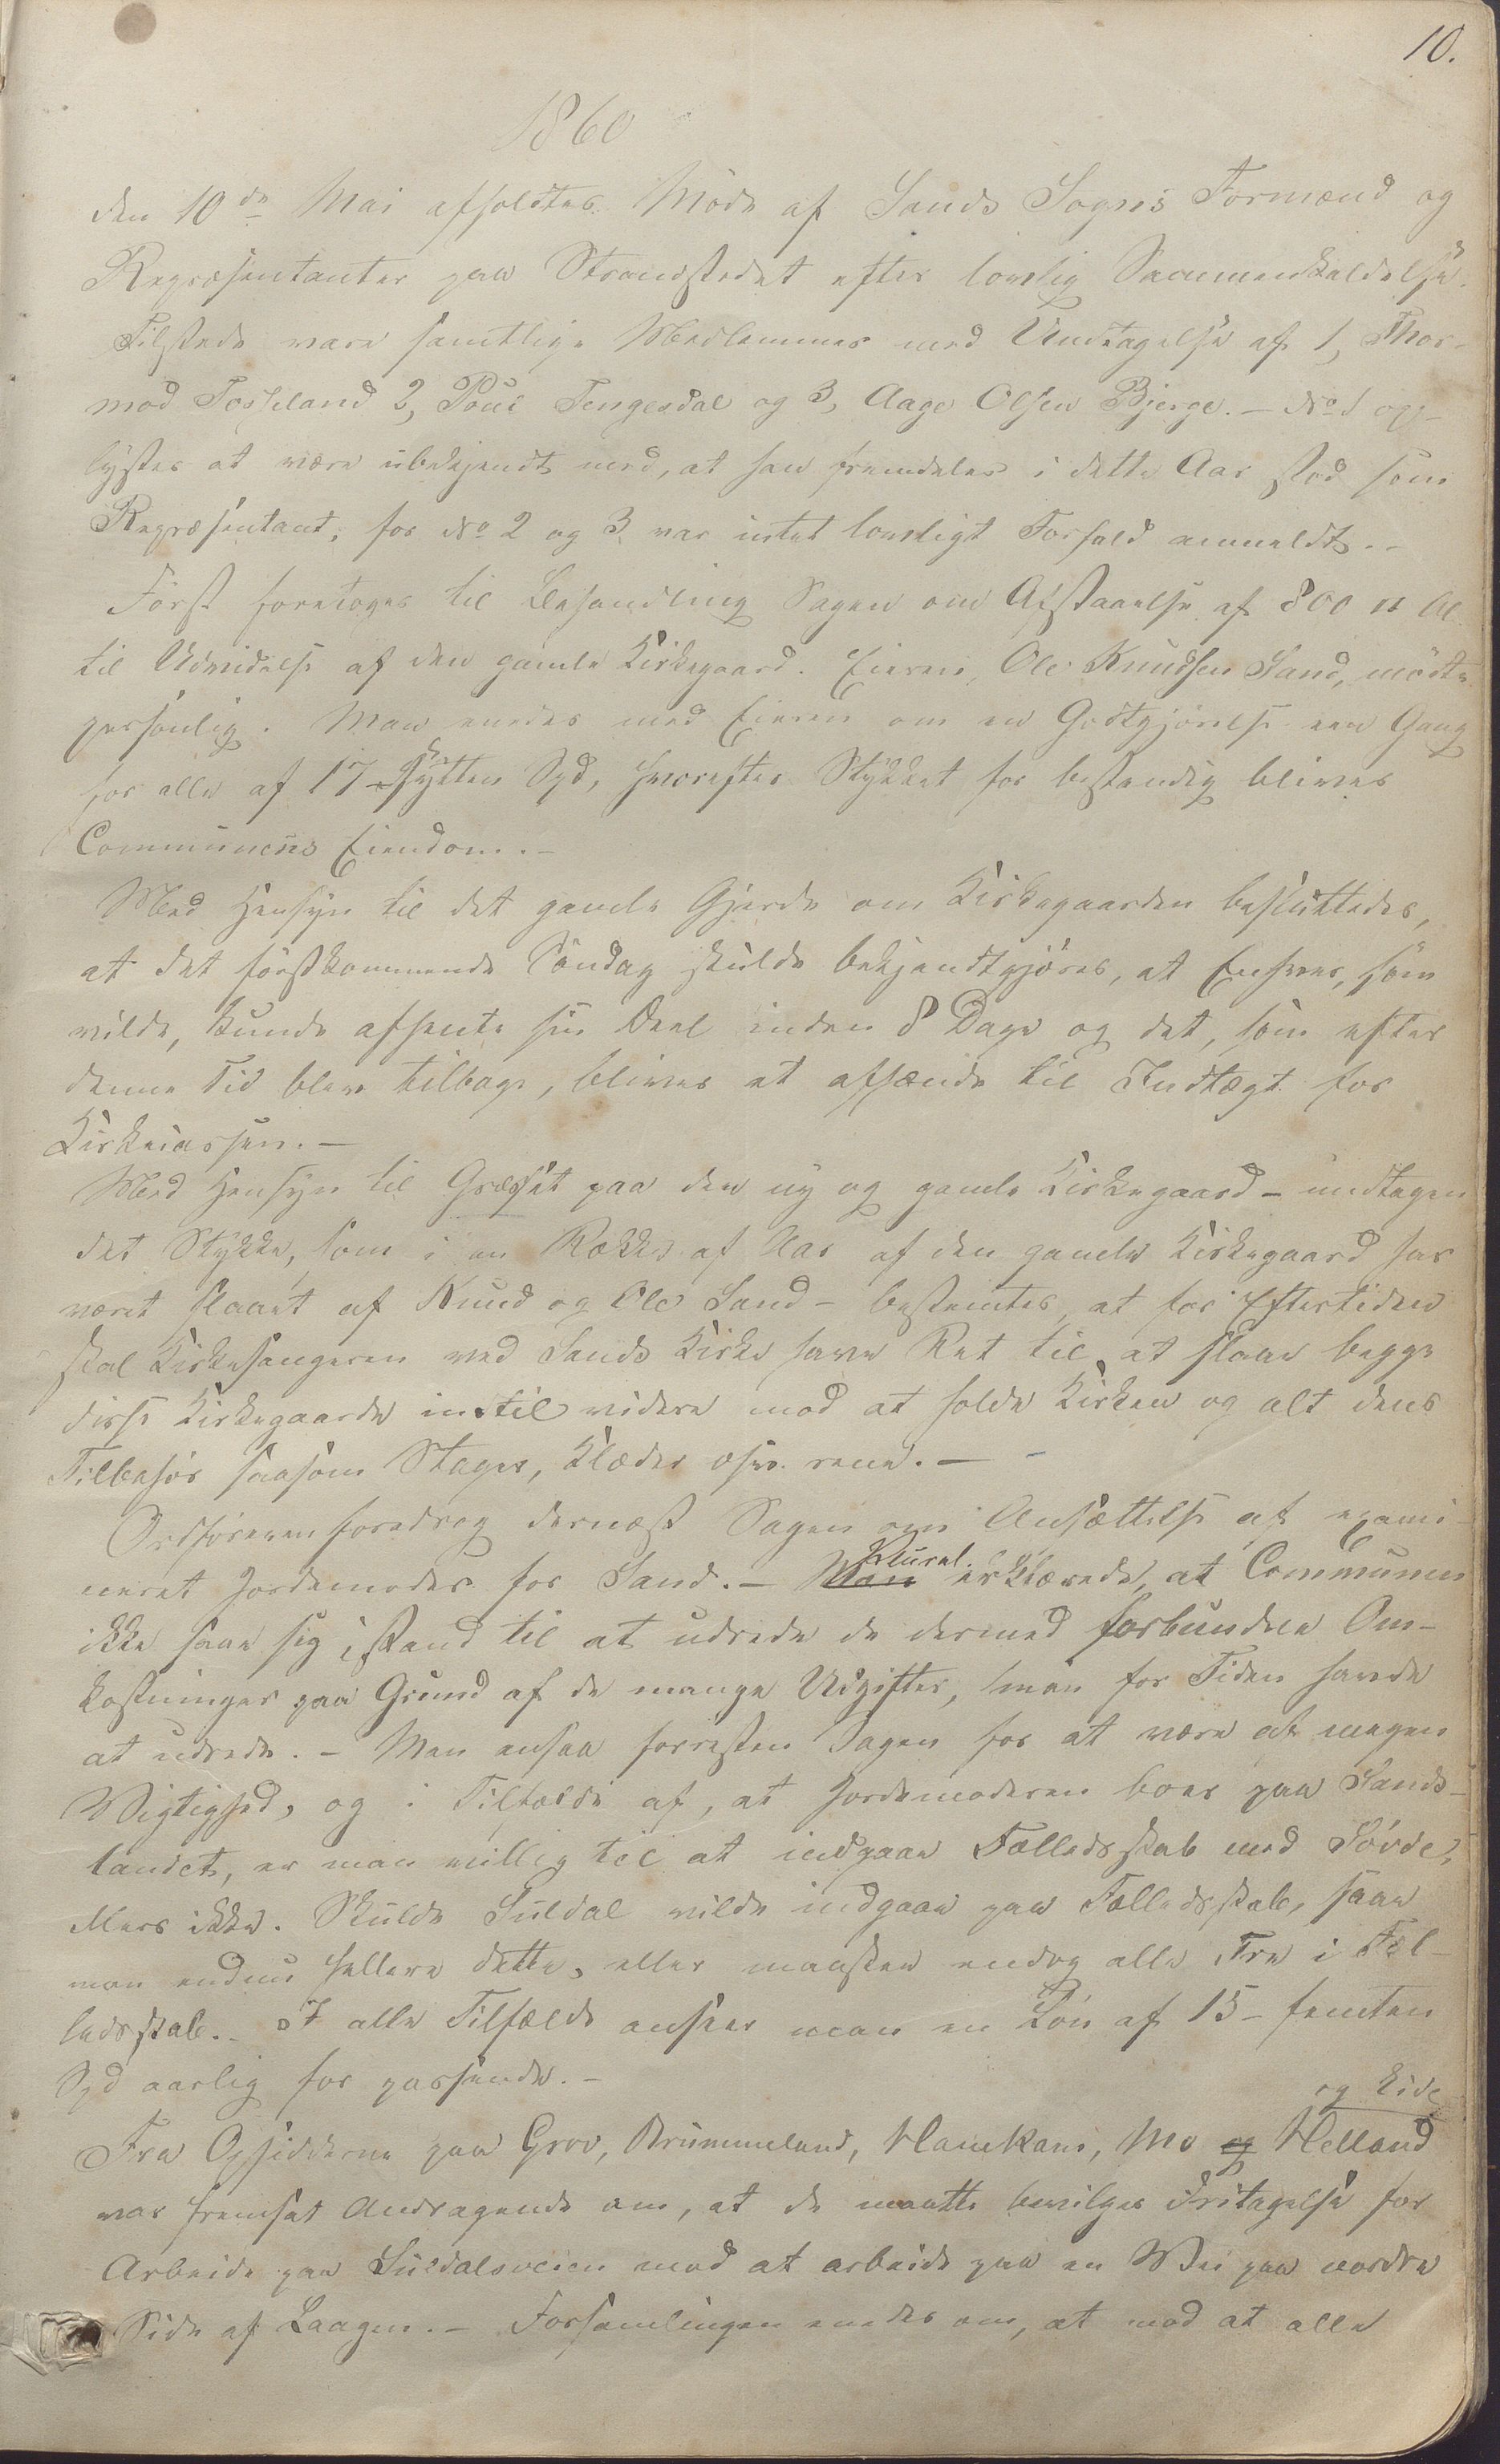 10.
1860
den 10de Mai afholdtes Møde af Sands Sogns Formænd og
Repræsentanter paa Strandstedet efter lovlig Sammenkaldelse.
Tilstede vare samtlige Medlemmer med Undtagelse af 1, Thor-
mod Fosseland 2, Poul Tengesdal og 3, Aage Olsen Bjerge. – No 1 op-
lystes at være ubekjendt med, at han fremdeles i dette Aar stod som
Repræsentant; for No 2 og 3 var intet lovligt Forfald anmeldt. –
Først foretoges til Behandling Sagen om Afstaaelse af 800 □ Al.
til Udvidelse af den gamle Kirkegaard. Eieren, Ole Knudsen Sand, mødte
personlig. Man enedes med Eieren om en Godtgjørelse een Gang
for alle af 17 – sytten Spd, hvorefter Stykket for bestandig bliver
Communens Eiendom. –
Med Hensyn til det gamle Gjerde om Kirkegaarden besluttedes,
at det førstkommende Søndag skulde bekjendtgjøres, at Enhver, som
vilde, kunde afhente sin Deel inden 8 Dage og det, som efter
denne Tid blev tilbage, bliver at afhænde til Indtægt for
Kirkecassen. –
Med Hensyn til Græsset paa den ny og gamle Kirkegaard – undtagen
det Stykke, som i en Række af Aar af den gamle Kirkegaard har
været slaaet af Knud og Ole Sand – bestemtes, at for Eftertiden
skal Kirkesangeren ved Sands Kirke have Ret til at slaae begge
disse Kirkegaarde indtil videre mod at holde Kirken og alt dens
Tilbehør saasom Stager, Klæder osv. rene. –
Ordføreren foredrog dernæst Sagen om Ansættelse af exami-
neret Jordemoder for Sand. – Man Plural. erklærede, at Communen
ikke saae sig istand til at udrede de dermed forbundne Om-
kostninger paa Grund af de mange Udgifter, man for Tiden havde
at udrede. – Man ansaa forresten Sagen for at være af megen
Vigtighed, og i Tilfælde af, at Jordemoderen boer paa Sands-
landet, er man villig til at indgaae Fælledsskab med Søvde,
ellers ikke. Skulde Suldal vilde indgaae paa Fælledsskab, saae
man endnu hellere dette, eller maaskee endog alle Tre i Fæl-
ledsskab. – I alle Tilfælde anseer man en Løn af 15 – femten
Spd aarlig for passende. –
og Eide
Fra Opsidderne paa Grov, Brummeland, Hanekam, Mo og Helland
var fremsat Andragende om, at de maatte bevilges Fritagelse for
Arbeide paa Suldalsveien mod at arbeide paa en Vei paa nordre
Side af Laagen. – Forsamlingen enedes om, at mod at alle